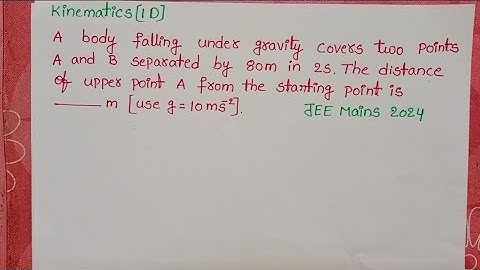 Kinematics [1D]
A body falling under gravity covers two points
A and B separated by 80m in 2s. The distance
of upper point A from the starting point is
_____ m [use g = 10 ms⁻²]. JEE Mains 2024